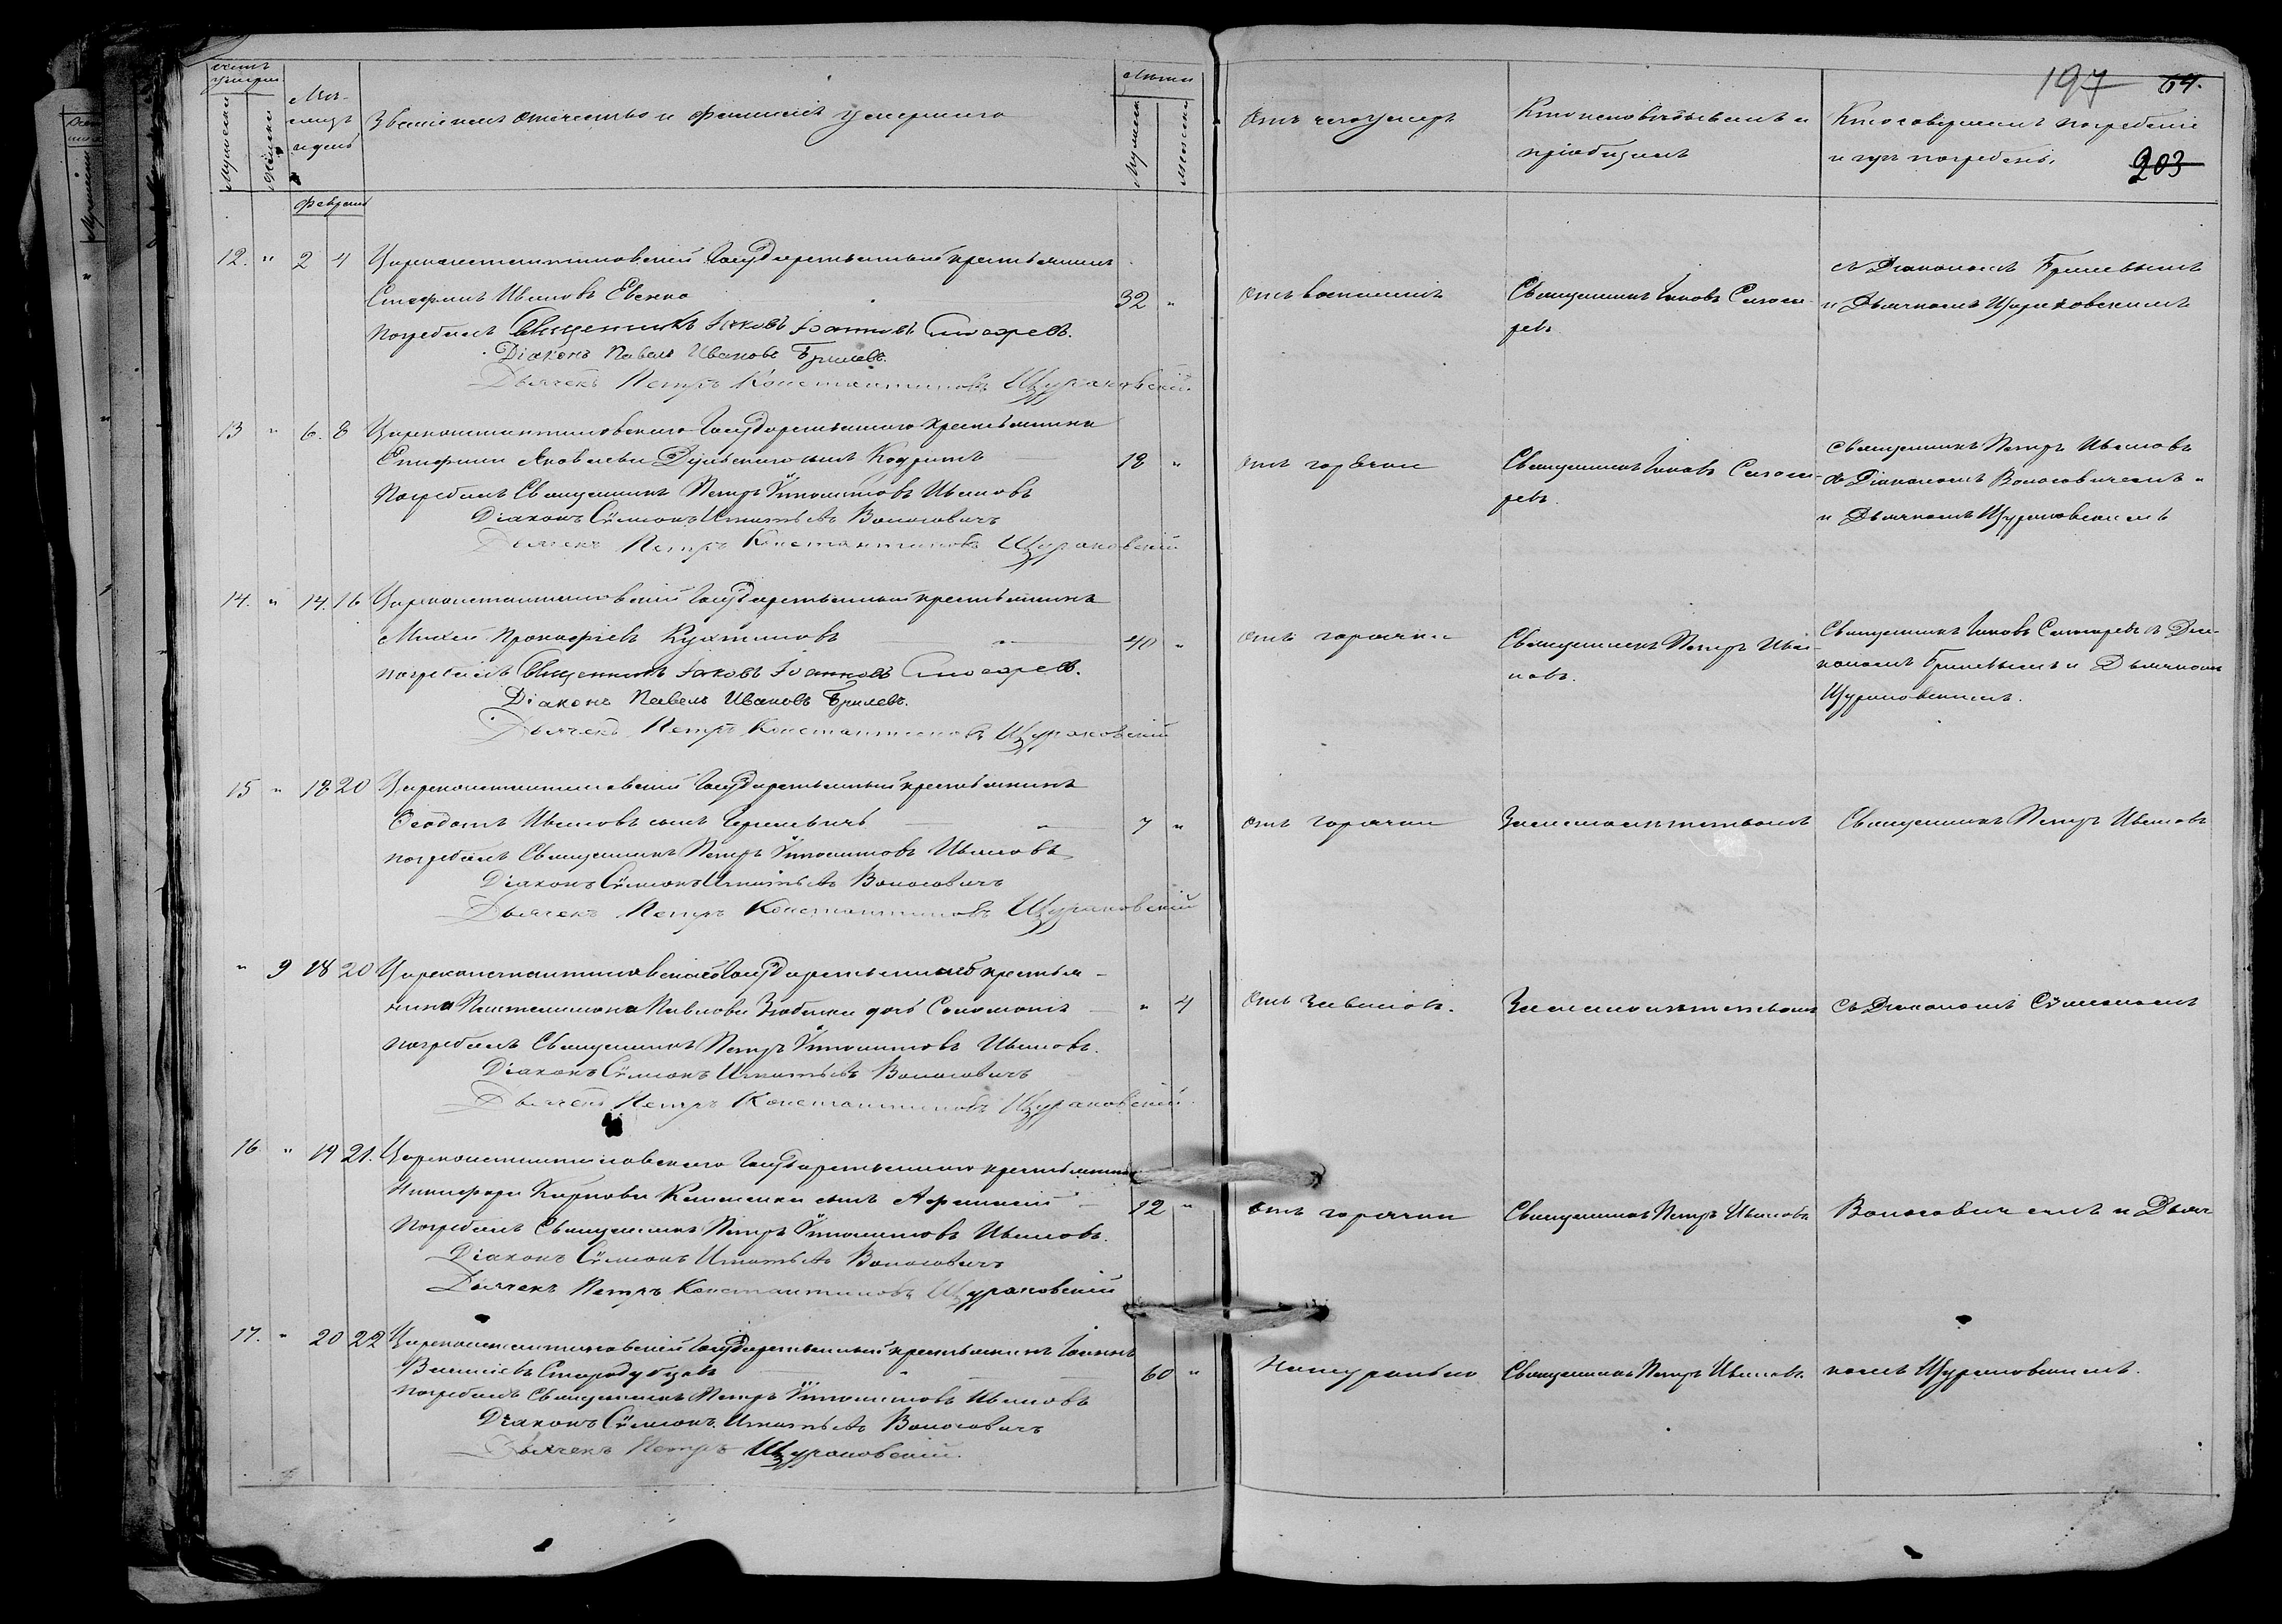 197 64.
203
счетъ умерш.
Мужеска
Женска
Мѣсяцъ и день
Званіе имя отчество и фамилія умершаго
Лѣта
Мужеска
Женска
Отъ чего умеръ
Кто исповѣдывалъ и пріобщалъ
Кто совершалъ погребеніе и гдѣ погребены
Февраль
12. " 2 4 Цареконстантиновскій Государственный крестьянинъ
Стефанъ Ивановъ Евенко 32 "
погребалъ Священникъ Іаковъ Іоанновъ
Діаконъ Павелъ Ивановъ Брилевъ.
Дьячекъ Петръ Константиновъ Щураковскій
Священникъ Іаковъ
съ Діакономъ Брилевымъ
и Дьячкомъ Щураковскимъ
13 " 6. 8 Цареконстантиновскаго Государственнаго крестьянина
Яковлева сынъ
погребалъ Священникъ Петръ Ивановъ
Діаконъ Сѵмеонъ Игнатьевъ Волосовичъ
Дьячекъ Петръ Константиновъ Щураковскій
отъ горячки
Священникъ Іаковъ
Священникъ Петръ Ивановъ
съ Діакономъ Волосовичемъ
и Дьячкомъ Щураковскимъ
14. " 14. 16 Цареконстантиновскій Государственный крестьянинъ
Михей Прокофіевъ Кухтиновъ 40 "
погребалъ Священникъ Іаковъ Іоанновъ
Діаконъ Павелъ Ивановъ Брилевъ.
Дьячекъ Петръ Константиновъ Щураковскій
отъ горячки
Священникъ Петръ Ивановъ.
Священникъ Іаковъ съ Діакономъ Брилевымъ и Дьячкомъ
Щураковскимъ.
15 " 18 20 Цареконстантиновскій Государственный крестьянинъ
Ѳеодотъ Ивановъ сынъ 7 "
погребалъ Священникъ Петръ Ивановъ
Діаконъ Сѵмеонъ Игнатьевъ Волосовичъ
Дьячекъ Петръ Константиновъ Щураковскій
отъ горячки
За малолѣтствомъ
Священникъ Петръ Ивановъ
" 9 18 20 Цареконстантиновскаго Государственнаго крестья-
нина Пантелимона Павлова дочь 4
погребалъ Священникъ Петръ Ивановъ.
Діаконъ Сѵмеонъ Игнатьевъ Волосовичъ
Дьячекъ Петръ Константиновъ Щураковскій
За малолѣтствомъ
съ Діакономъ Сѵмеономъ
16 " 19 21. Цареконстантиновскаго Государственнаго крестьянина
Никифора Карпова сынъ Афанасій 12 "
погребалъ Священникъ Петръ Ивановъ.
Діаконъ Сѵмеонъ Игнатьевъ Волосовичъ
Дьячекъ Петръ Константиновъ Щураковскій
отъ горячки
Священникъ Петръ Ивановъ
Волосовичемъ и Дьяч
17. " 20 22 Цареконстантиновскій Государственный крестьянинъ Іоаннъ
Стародубцевъ 60 "
погребалъ Священникъ Петръ Ивановъ
Діаконъ Сѵмеонъ Игнатьевъ Волосовичъ
Дьячекъ Петръ Щураковскій.
Натурально
Священникъ Петръ Ивановъ
комъ Щураковскимъ.